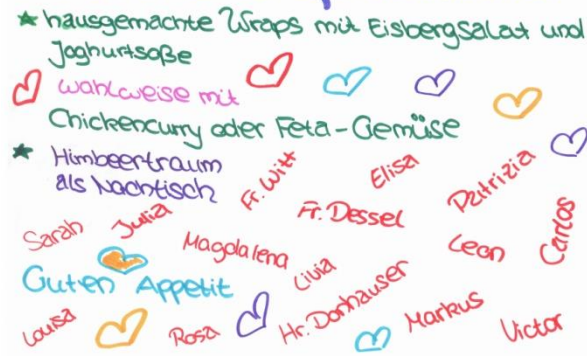 ★ hausgemachte Wraps mit Eisbergsalat und
Joghurtsoße
wahlweise mit
Chickencurry oder Feta-Gemüse
★ Himbeertraum
als Nachtisch
Fr. Witt
Elisa
Patrizia
Sarah
Julia
Fr. Dessel
Carlos
Magdalena
Livia
Leon
Guten Appetit
Hr. Dorhauser
Louisa
Rosa
Markus
Victor